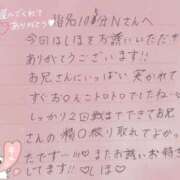 選んでくれて
ありがとう♡
指名10分Nさんへ
今回はしほをお誘いいただき
ありがとうございます!!
お兄さんにいっぱい突かれて
すぐお〇んこトロトロでたねーせ
しっかり2回戦までできてお兄
さんの精〇搾り取れてよかっ
たですー!!!♡またお誘いお待ち
してます♡しほ♡